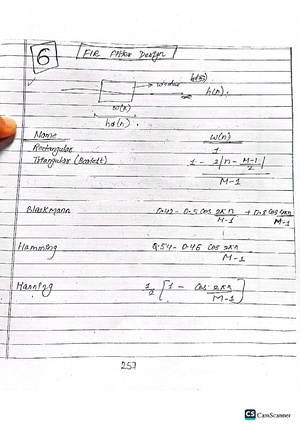 6
FIR Filter Design
window
h(n)
w(n)
hd(n)
Name w(n)
Rectangular 1
Triangular (Bartlett) 1 - 2|n - M-1/2| / M-1
Blackmann 0.42 - 0.5 cos 2πn/M-1 + 0.8 cos 4πn/M-1
Hamming 0.54 - 0.46 cos 2πn/M-1
Hanning 1/2 [1 - cos 2πn/M-1]
257
CS CamScanner